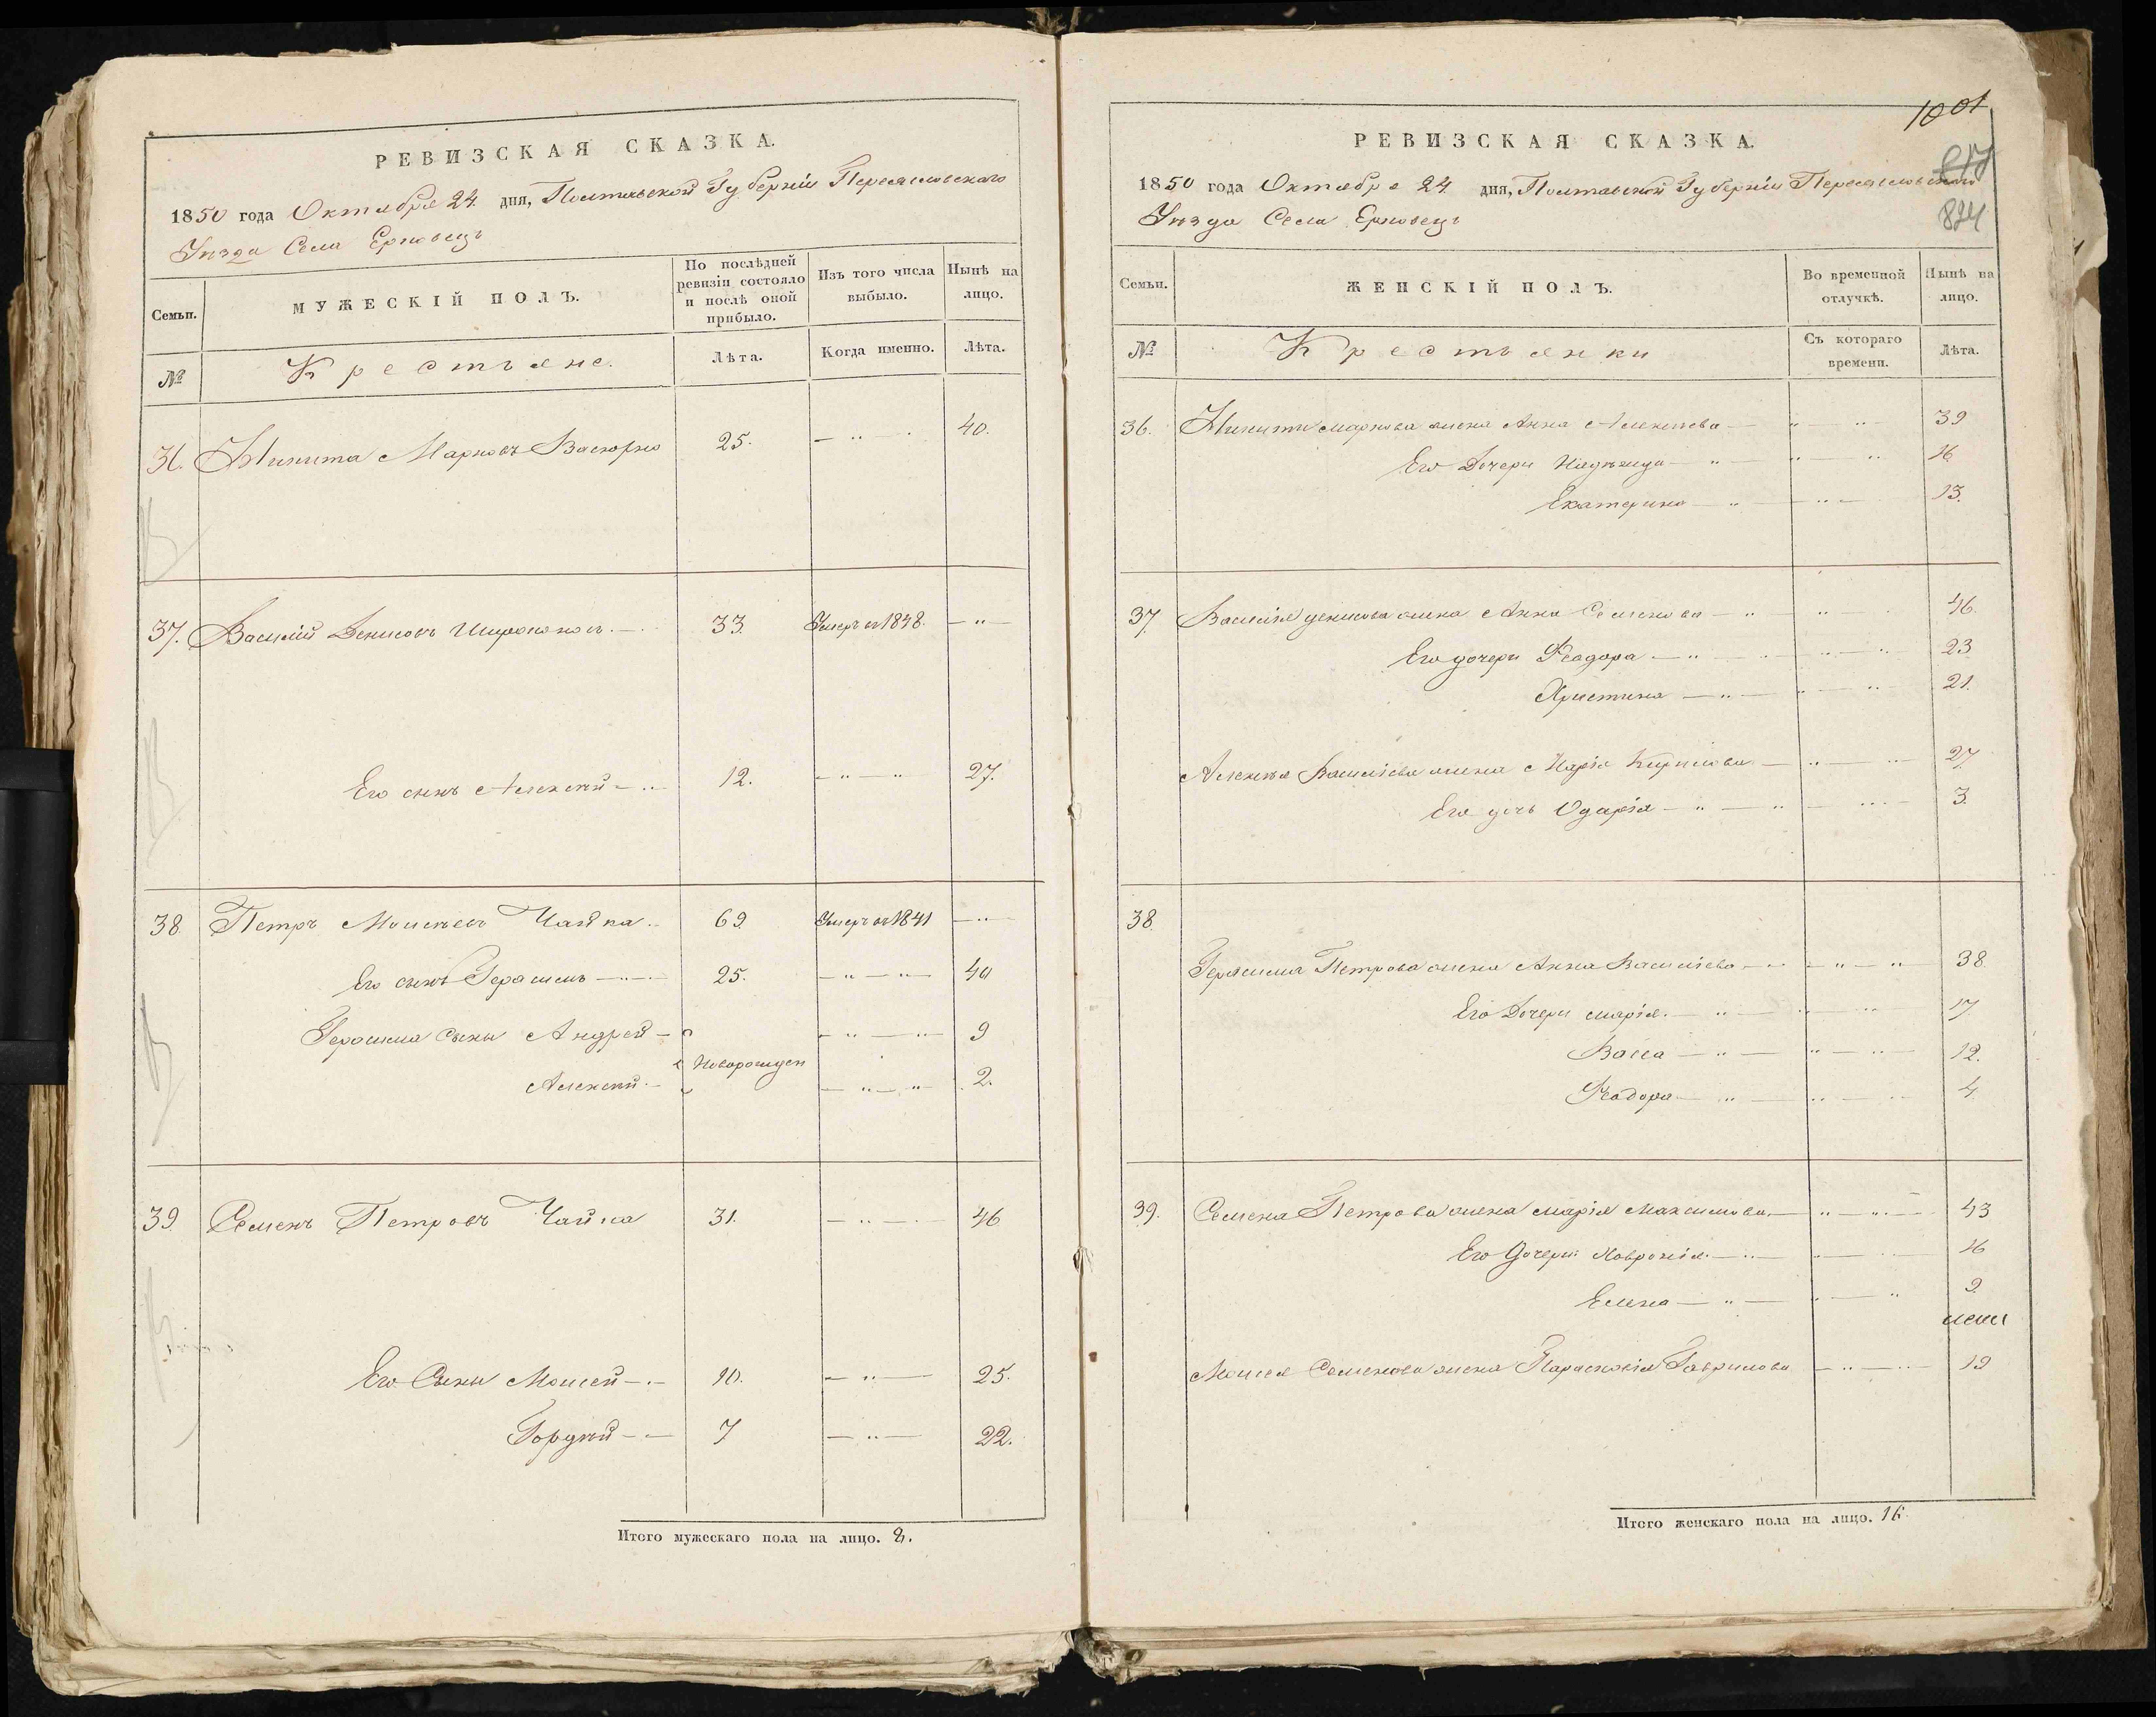 РЕВИЗСКАЯ СКАЗКА.
1850 года Октября 24. дня, Полтавской Губерніи Переяславскаго
Уѣзда Села Ерковецъ
Семьи.
МУЖЕСКІЙ ПОЛЪ.
По послѣдней ревизіи состояло и послѣ оной прибыло.
Изъ того числа выбыло.
Нынѣ на лицо.
№
Крестьяне.
Лѣта.
Когда именно.
Лѣта.
36. Никита Марковъ 25. 40.
37. Василій Денисовъ Широконосъ 33. Умеръ въ 1848.
Его сынъ Алексѣй 12. 27.
38 Петръ Моисѣевъ Чайка 69 Умеръ въ 1841
Его сынъ Герасимъ 25. 40
Герасима Сыны Андрей 9
Новорожден
Алексѣй 2.
39 Семенъ Петровъ Чайка 31. 46
Его Сыны Моисей 10. 25.
Гордѣй 7 22.
Итого мужескаго пола на лицо. 8.
1001
817
824
РЕВИЗСКАЯ СКАЗКА.
1850 года Октября 24 дня, Полтавской Губерніи Переяславскаго
Уѣзда Села Ерковецъ
Семьи.
ЖЕНСКІЙ ПОЛЪ.
Во временной отлучкѣ.
Нынѣ на лицо.
№
Крестьянки
Съ котораго времени.
Лѣта.
36. Никиты Маркова жена Анна Алексѣева 39
Его Дочери Надѣжда 16
Екатерина 13.
37 Василія Денисова жена Анна Семенова 46.
Его дочери Феодора 23
Христина 21.
Алексѣя Васильева жена Марія Кирилова 27
Его дочь Одарія 3.
38.
Герасима Петрова жена Анна Васильева 38.
Его Дочери Марія 17
Васса 12.
Феодора 4
39. Семена Петрова жена Марія Максимова 43
Его Дочери 16
Елена 9
Моисея Семенова жена Парасковія Гаврилова 19
Итого женскаго пола на лицо. 16